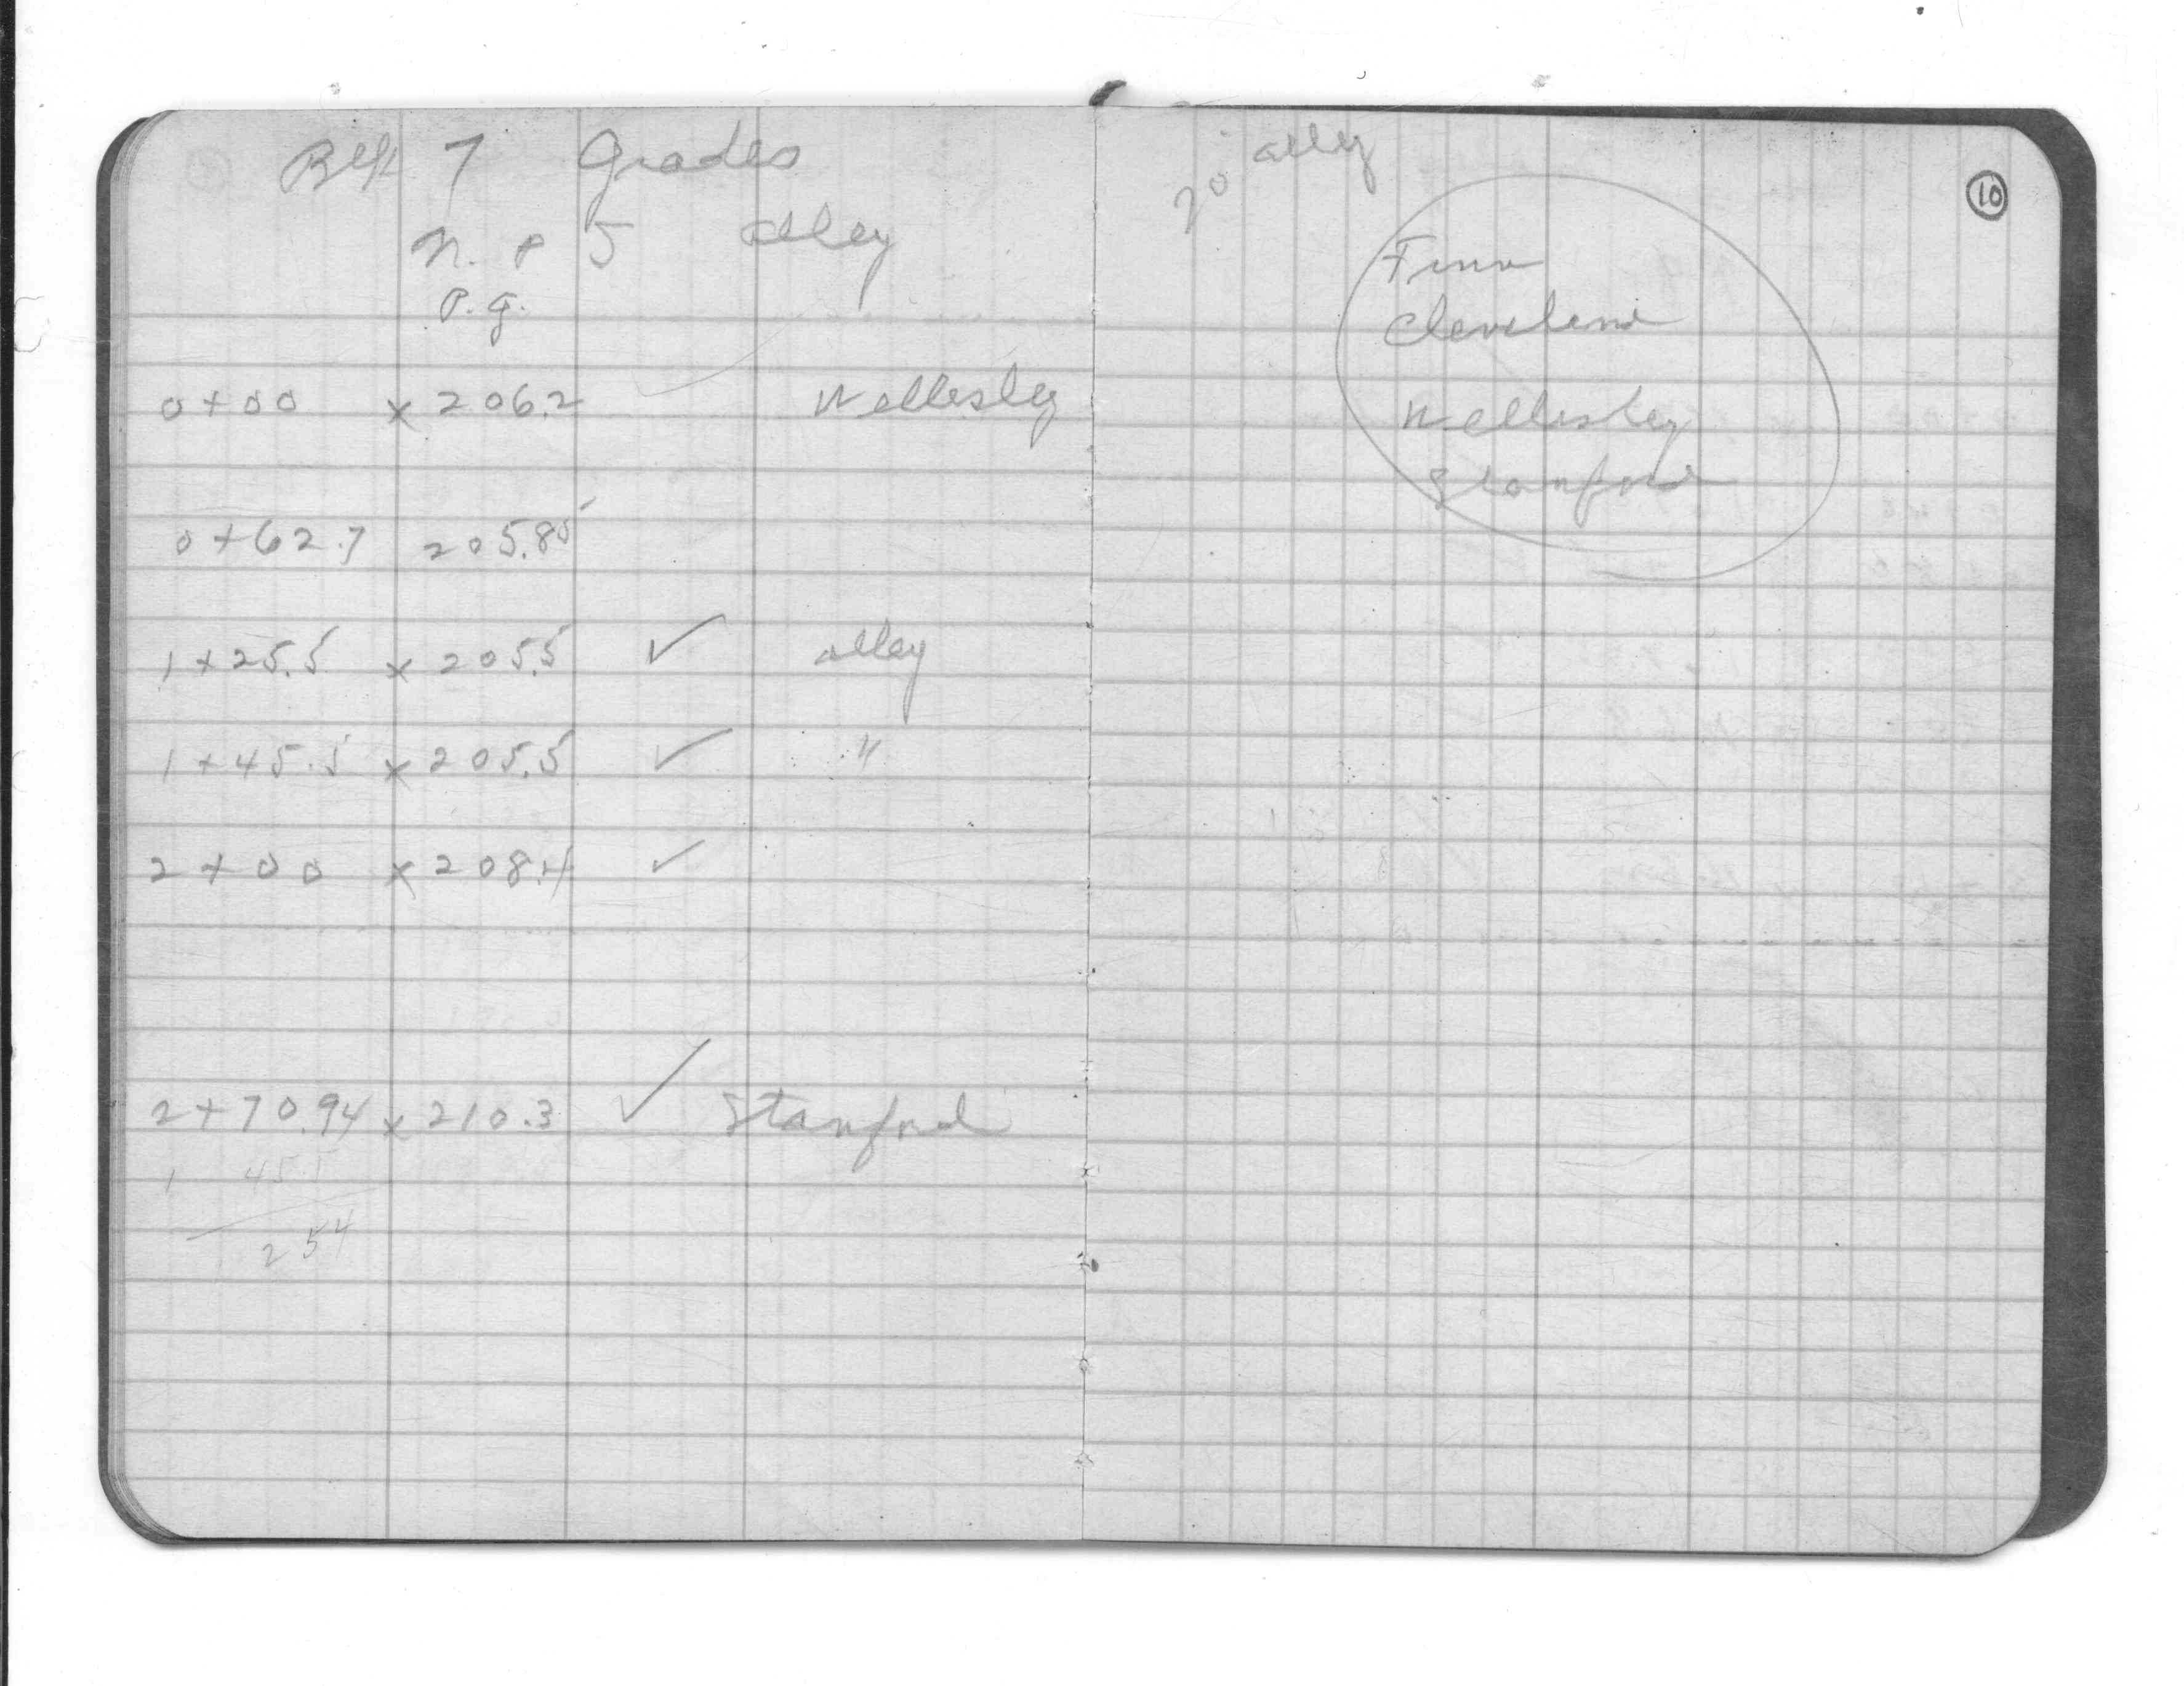 Blk 7 Grades
N. & S alley
P.G.
0+00 x 206.2 Wellesley
0+62.7 205.85
1+25.5 x 205.5 ✓ alley
1+45.5 x 205.5 ✓ "
2+00 x 208.4 ✓
2+70.94 x 210.3 ✓ Stanford
1 45.5
254
20' alley
10
Cleveland
Wellesley
Stanford